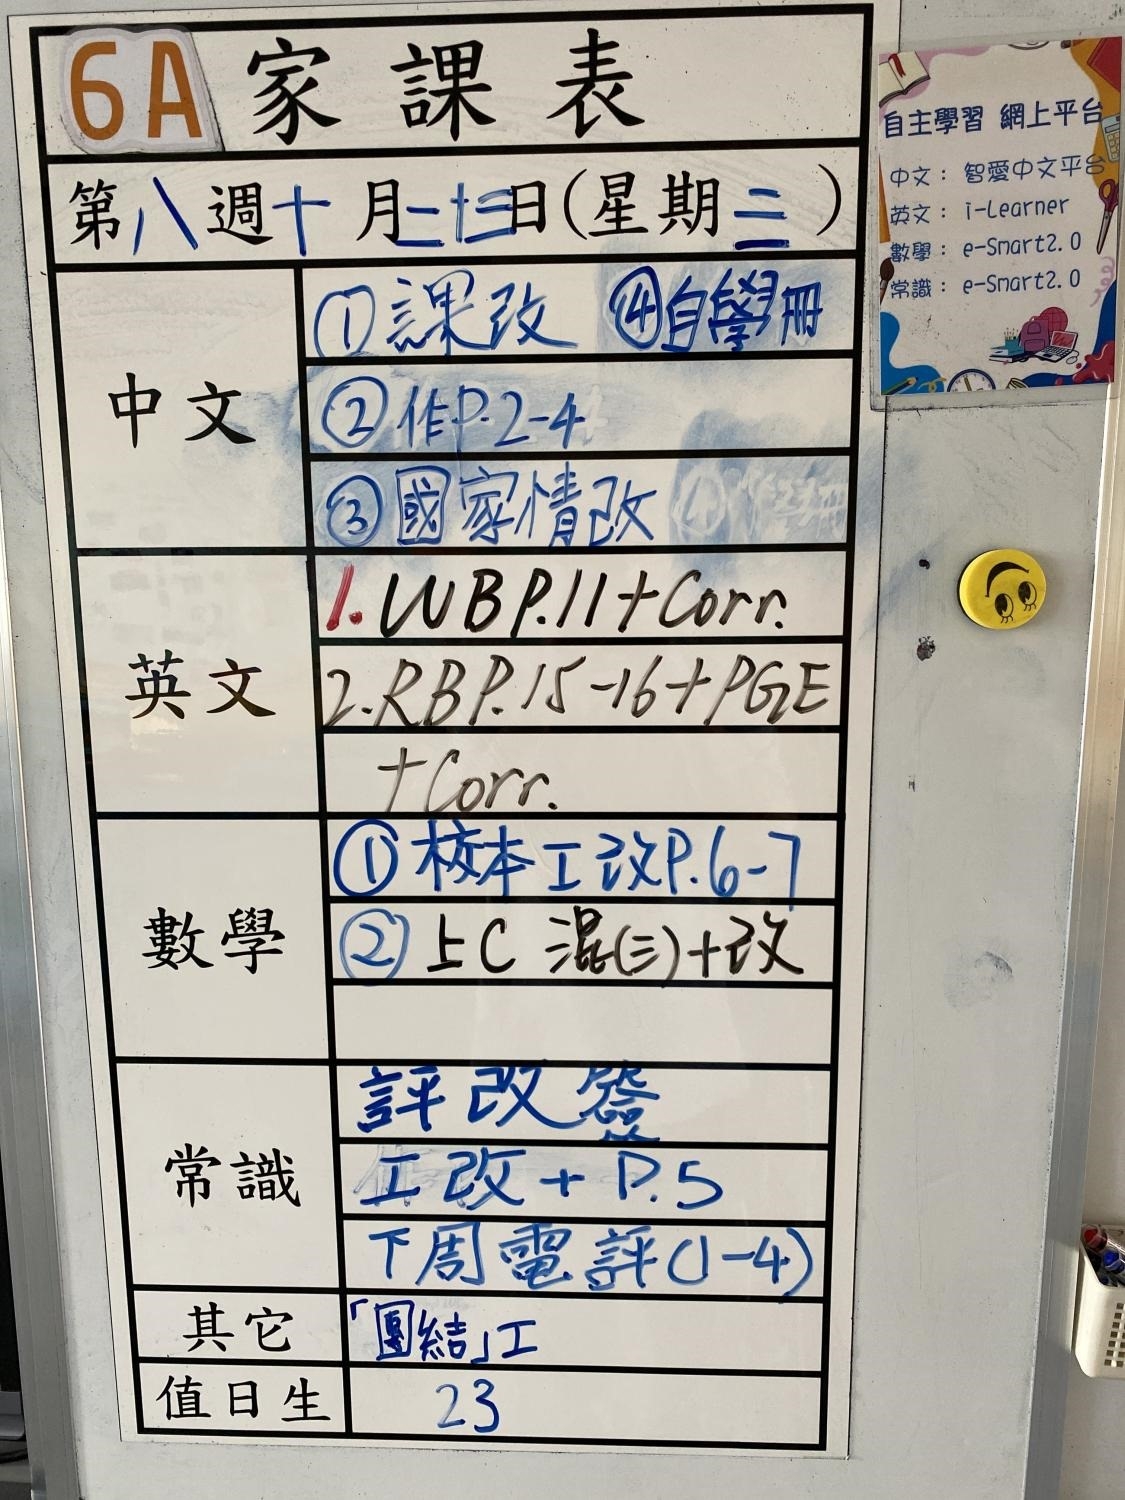 6A 家課表
第八週十月二十三日(星期二)
中文
①課改 ④自學冊
②作P.2-4
③國家情改
英文
1. WB P.11+Corr.
2. RB P.15-16+PGE
+Corr.
數學
①校本工改P.6-7
②上C 混(三)+改
常識
評改簽
工改+P.5
下周電評(1-4)
其它
「團結」工
值日生
23
自主學習 網上平台
中文: 智愛中文平台
英文: i-Learner
數學: e-Smart2.0
常識: e-Smart2.0